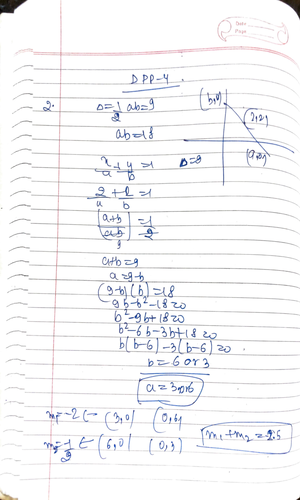 Date
Page
DPP-4
2. Δ=1/2 ab=9
ab=18
x/a + y/b =1
Δ=9
(2,2)
2/a + 2/b =1
(a+b/ab) = 1/2
a+b=9
a=9-b
(9-b)(b)=18
9b-b²-18=0
b²-9b+18=0
b²-6b-3b+18=0
b(b-6)-3(b-6)=0
b=6 or 3
a=3 or 6
m₁=-2 ← (3,0) (0,6)
← (6,0) (0,3)